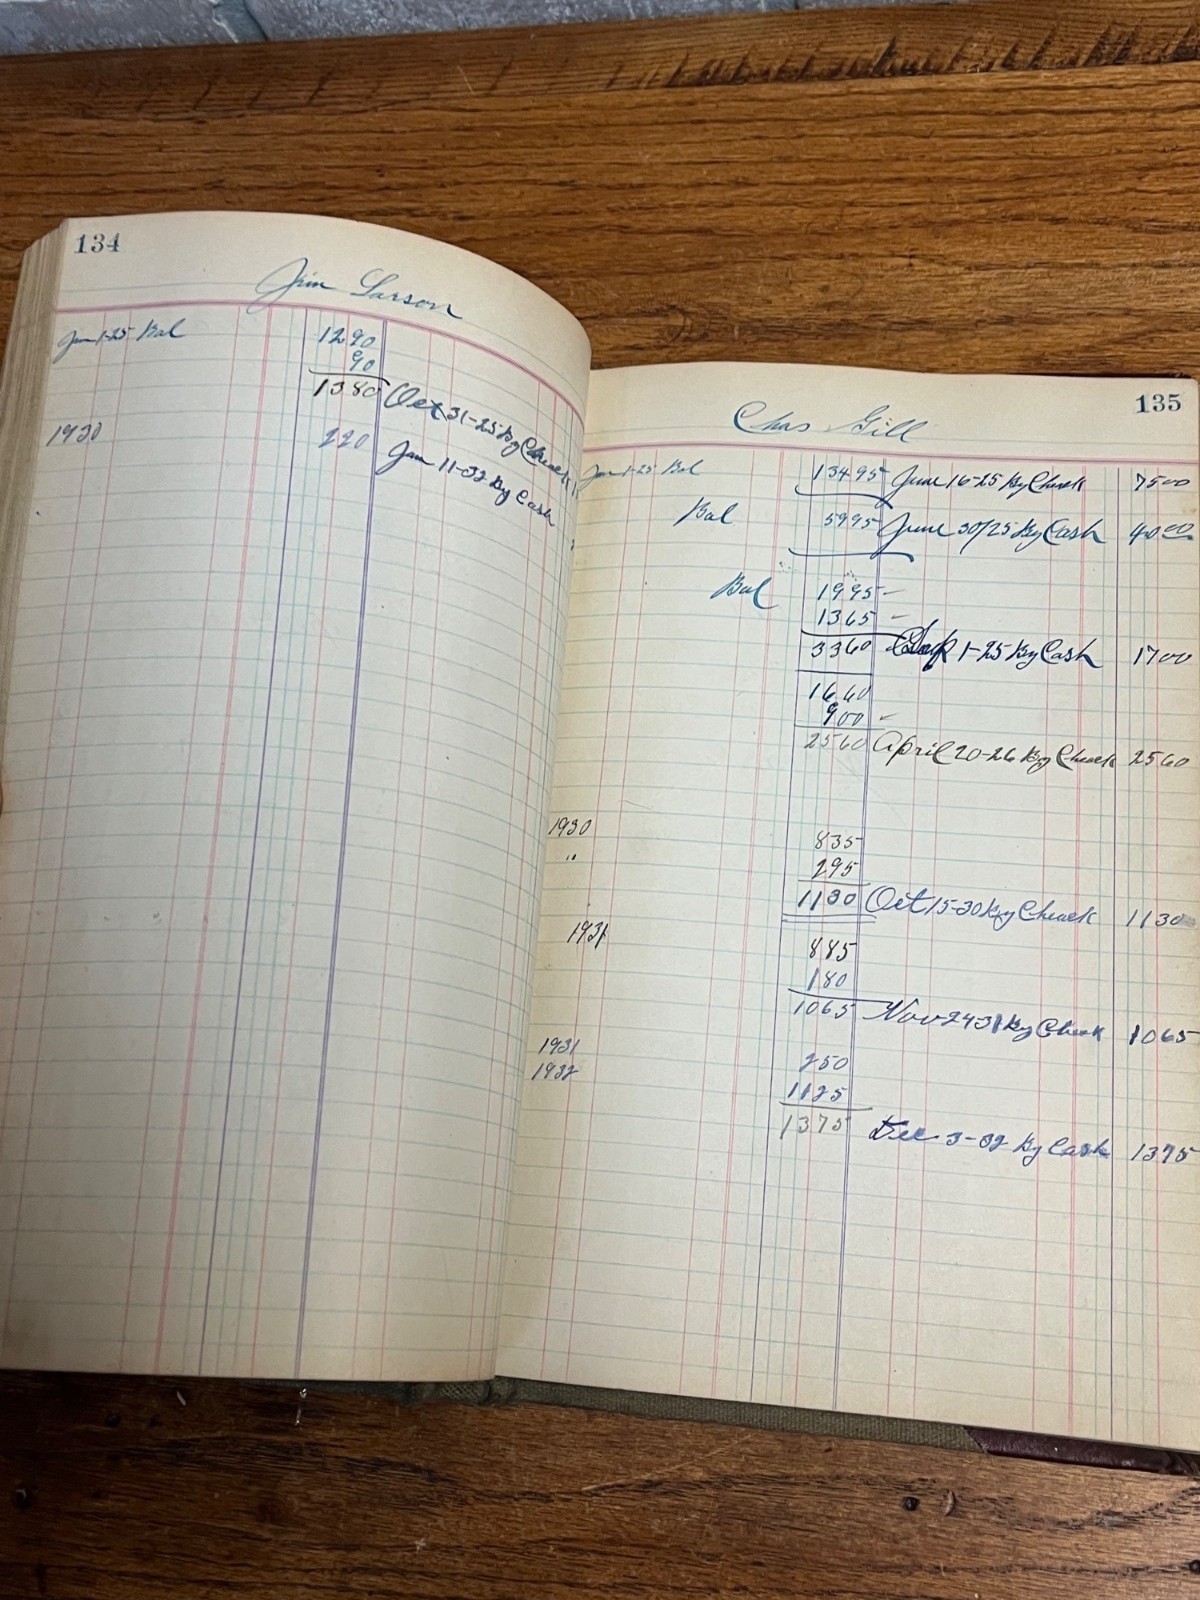 134
Jim Larson
Jan 1-25 Bal 1290
90
1380 Oct 31-25 By Check
1930 220 Jan 11-32 By Cash
135
Chas Gill
Jan 1-25 Bal 13495 June 16-25 By Check 7500
Bal 5995 June 30/25 By Cash 4000
Bal 1995 -
1365 -
3360 1-25 By Cash 1700
1660
900 -
2560 April 20-26 By Check 2560
1930 835
" 295
1130 Oct 15-30 By Check 1130
1931 885
180
1065 Nov 24 31 By Check 1065
1931 250
1932 1125
1375 Dec 3-32 By Cash 1375